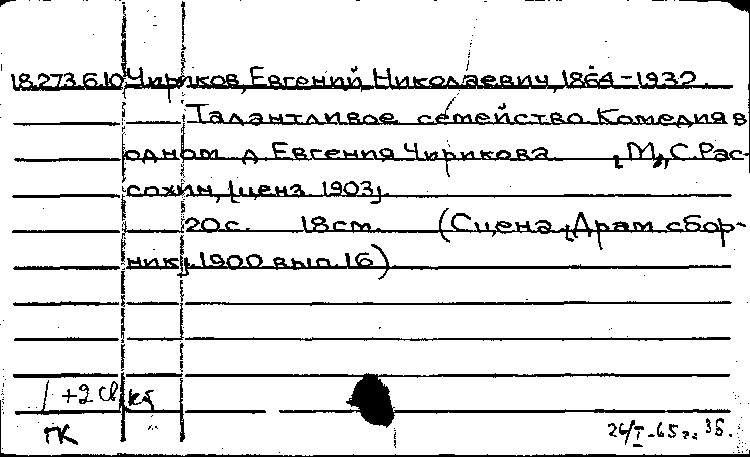 18.273.6.10 Чириков, Евгений Николаевич, 1864-1932.
Талантливое семейство. Комедия в
одном д. Евгения Чирикова. [М.], С. Рас-
сохин, [ценз. 1903].
20 с. 18 см. (Сцена. [Драм. сбор-
ник]. 1900 вып. 16)
ГК
26/I-65 г.